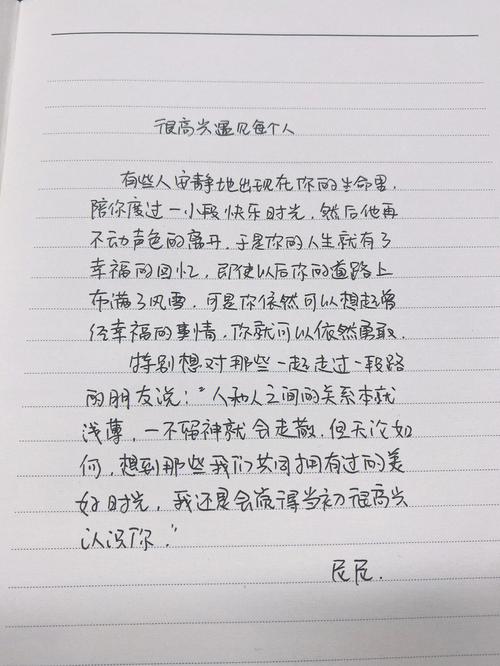 很高兴遇见每个人
有些人安静地出现在你的生命里，
陪你度过一小段快乐时光，然后他再
不动声色的离开，于是你的人生就有了
幸福的回忆，即使以后你的道路上
布满了风雪，可是你依然可以想起曾
经幸福的事情，你就可以依然勇敢．
特别想对那些一起走过一段路
的朋友说：“人和人之间的关系本就
浅薄，一不留神就会走散，但无论如
何，想到那些我们共同拥有过的美
好时光，我还是会觉得当初很高兴
认识你．”
尼尼．